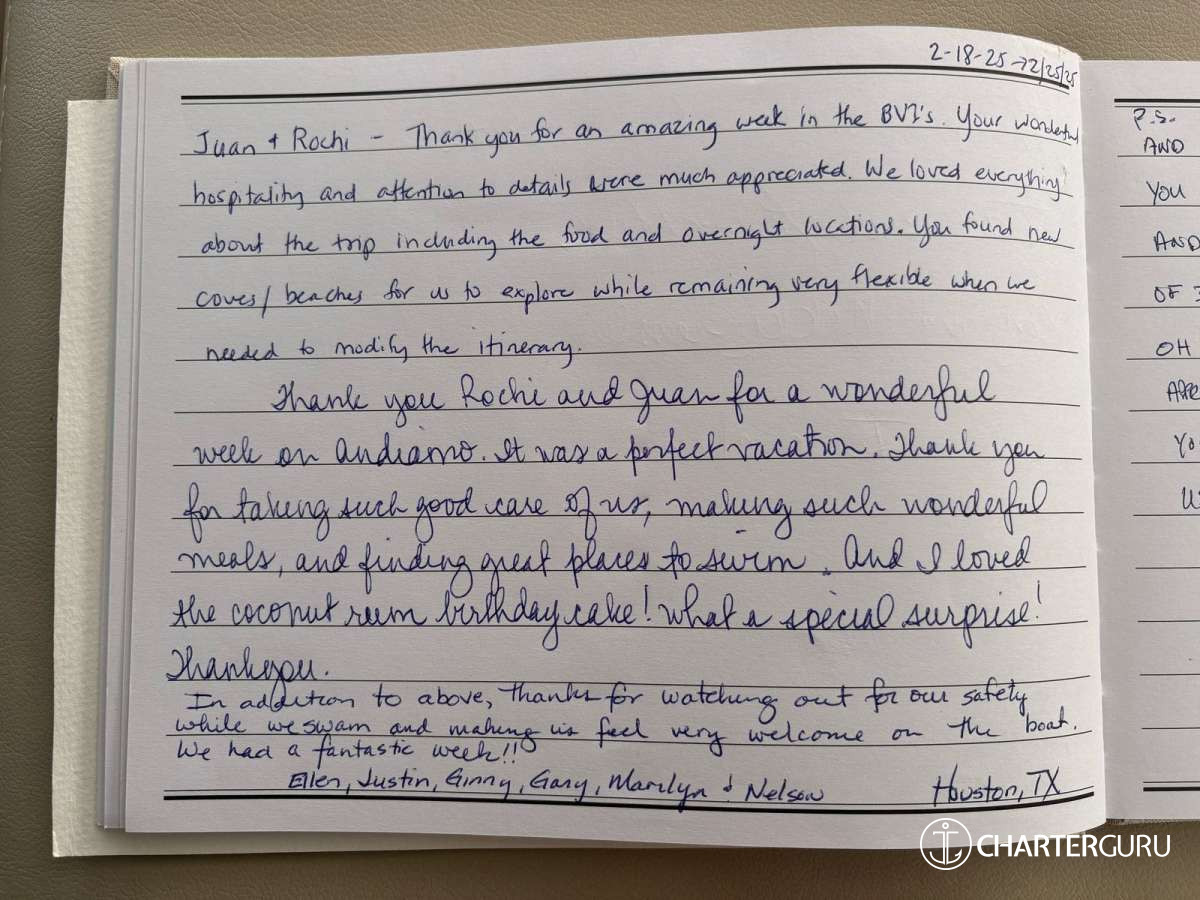 2-18-25→2/25/25
Juan + Rochi - Thank you for an amazing week in the BVI's. Your wonderful
hospitality and attention to details were much appreciated. We loved everything
about the trip including the food and overnight locations. You found new
coves/beaches for us to explore while remaining very flexible when we
needed to modify the itinerary.
Thank you Rochi and Juan for a wonderful
week on Andiamo. It was a perfect vacation. Thank you
for taking such good care of us, making such wonderful
meals, and finding great places to swim. And I loved
the coconut rum birthday cake! What a special surprise!
Thank you.
In addition to above, thanks for watching out for our safety
while we swam and making us feel very welcome on the boat.
We had a fantastic week!!
Ellen, Justin, Ginny, Gary, Marilyn & Nelson Houston, TX
P.S.
AND
YOU
AND
OF
OH
YO
CHARTERGURU